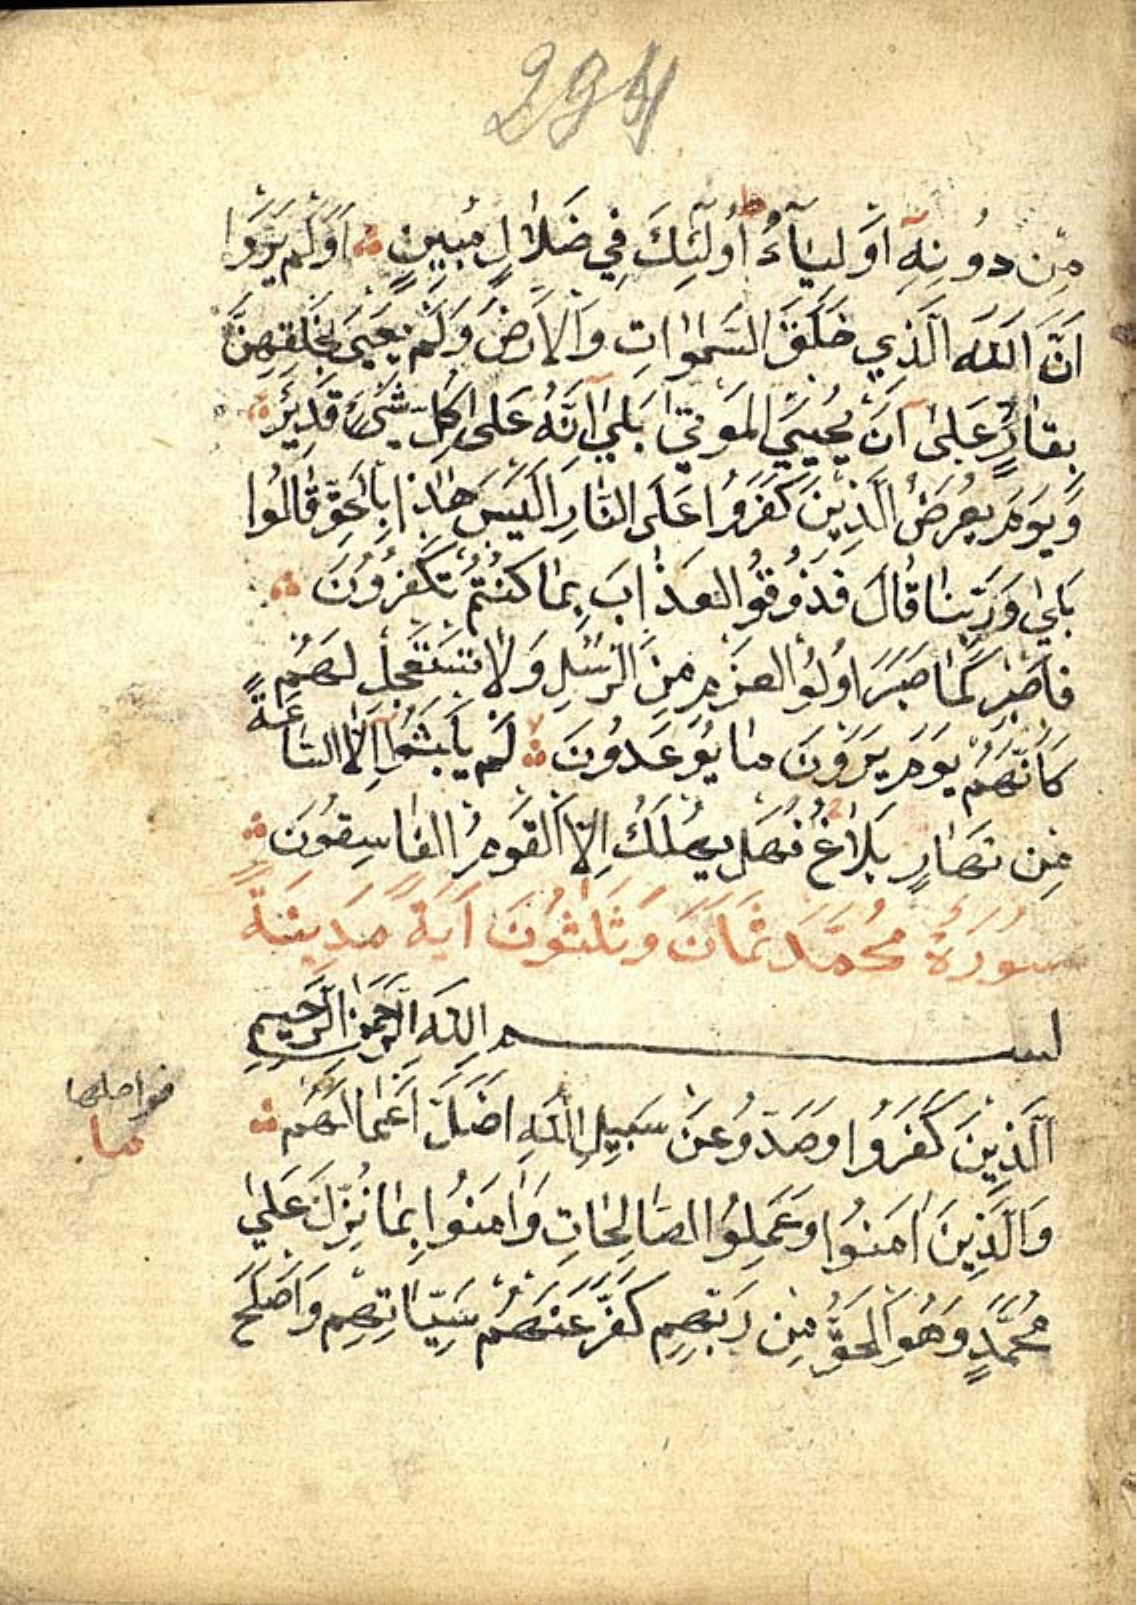 294
مِنْ دُونِهِ اَوْلِيَآءُ ط اُولٰٓئِكَ فِي ضَلَالٍ مُبِينٍ اَوَلَمْ يَرَوْا
اَنَّ اللّٰهَ الَّذِي خَلَقَ السَّمٰوَاتِ وَالْاَرْضَ وَلَمْ يَعْيَ بِخَلْقِهِنَّ
بِقَادِرٍ عَلٰى اَنْ يُحْيِيَ الْمَوْتٰى بَلٰى اِنَّهُ عَلٰى كُلِّ شَيْءٍ قَدِيرٌ
وَيَوْمَ يُعْرَضُ الَّذِينَ كَفَرُوا عَلَى النَّارِ اَلَيْسَ هٰذَا بِالْحَقِّ قَالُوا
بَلٰى وَرَبِّنَا قَالَ فَذُوقُوا الْعَذَابَ بِمَا كُنْتُمْ تَكْفُرُونَ
فَاصْبِرْ كَمَا صَبَرَ اُولُوا الْعَزْمِ مِنَ الرُّسُلِ وَلَا تَسْتَعْجِلْ لَهُمْ
كَاَنَّهُمْ يَوْمَ يَرَوْنَ مَا يُوعَدُونَ لا لَمْ يَلْبَثُوا اِلَّا السَّاعَةً
مِنْ نَهَارٍ بَلَاغٌ فَهَلْ يُهْلَكُ اِلَّا الْقَوْمُ الْفَاسِقُونَ
سُورَةُ مُحَمَّدَ ثَمَانَ وَثَلٰثُونَ اٰيَةً مَدِينَةً
بسم اللّٰه الرَّحْمٰنِ الرَّحِيمِ
اَلَّذِينَ كَفَرُوا وَصَدُّو عَنْ سَبِيلِ اللّٰهِ اَضَلَّ اَعْمَالَهُمْ
وَالَّذِينَ اٰمَنُوا وَعَمِلُوا الصَّالِحَاتِ وَاٰمَنُوا بِمَا نُزِّلَ عَلٰى
مُحَمَّدٍ وَهُوَ الْحَقُّ مِنْ رَبِّهِمْ كَفَّرَ عَنْهُمْ سَيِّاٰتِهِمْ وَاَصْلَحَ
فواصلها
ما